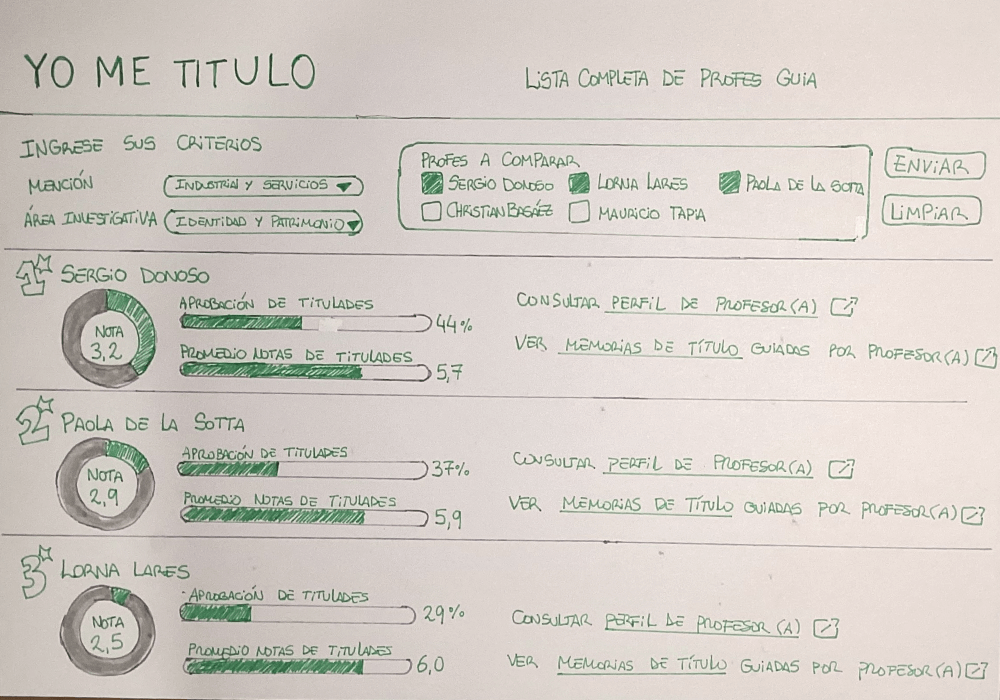 YO ME TITULO
LISTA COMPLETA DE PROFES GUIA
INGRESE SUS CRITERIOS
MENCIÓN
INDUSTRIAL Y SERVICIOS
ÁREA INVESTIGATIVA
IDENTIDAD Y PATRIMONIO
PROFES A COMPARAR
SERGIO DONOSO
LORNA LARES
PAOLA DE LA SOTTA
CHRISTIAN BASÁEZ
MAURICIO TAPIA
ENVIAR
LIMPIAR
1 SERGIO DONOSO
NOTA
3,2
APROBACIÓN DE TITULADES
44%
PROMEDIO NOTAS DE TITULADES
5,7
CONSULTAR PERFIL DE PROFESOR(A)
VER MEMORIAS DE TÍTULO GUIADAS POR PROFESOR(A)
2 PAOLA DE LA SOTTA
NOTA
2,9
APROBACIÓN DE TITULADES
37%
PROMEDIO NOTAS DE TITULADES
5,9
CONSULTAR PERFIL DE PROFESOR(A)
VER MEMORIAS DE TÍTULO GUIADAS POR PROFESOR(A)
3 LORNA LARES
NOTA
2,5
APROBACIÓN DE TITULADES
29%
PROMEDIO NOTAS DE TITULADES
6,0
CONSULTAR PERFIL DE PROFESOR(A)
VER MEMORIAS DE TÍTULO GUIADAS POR PROFESOR(A)